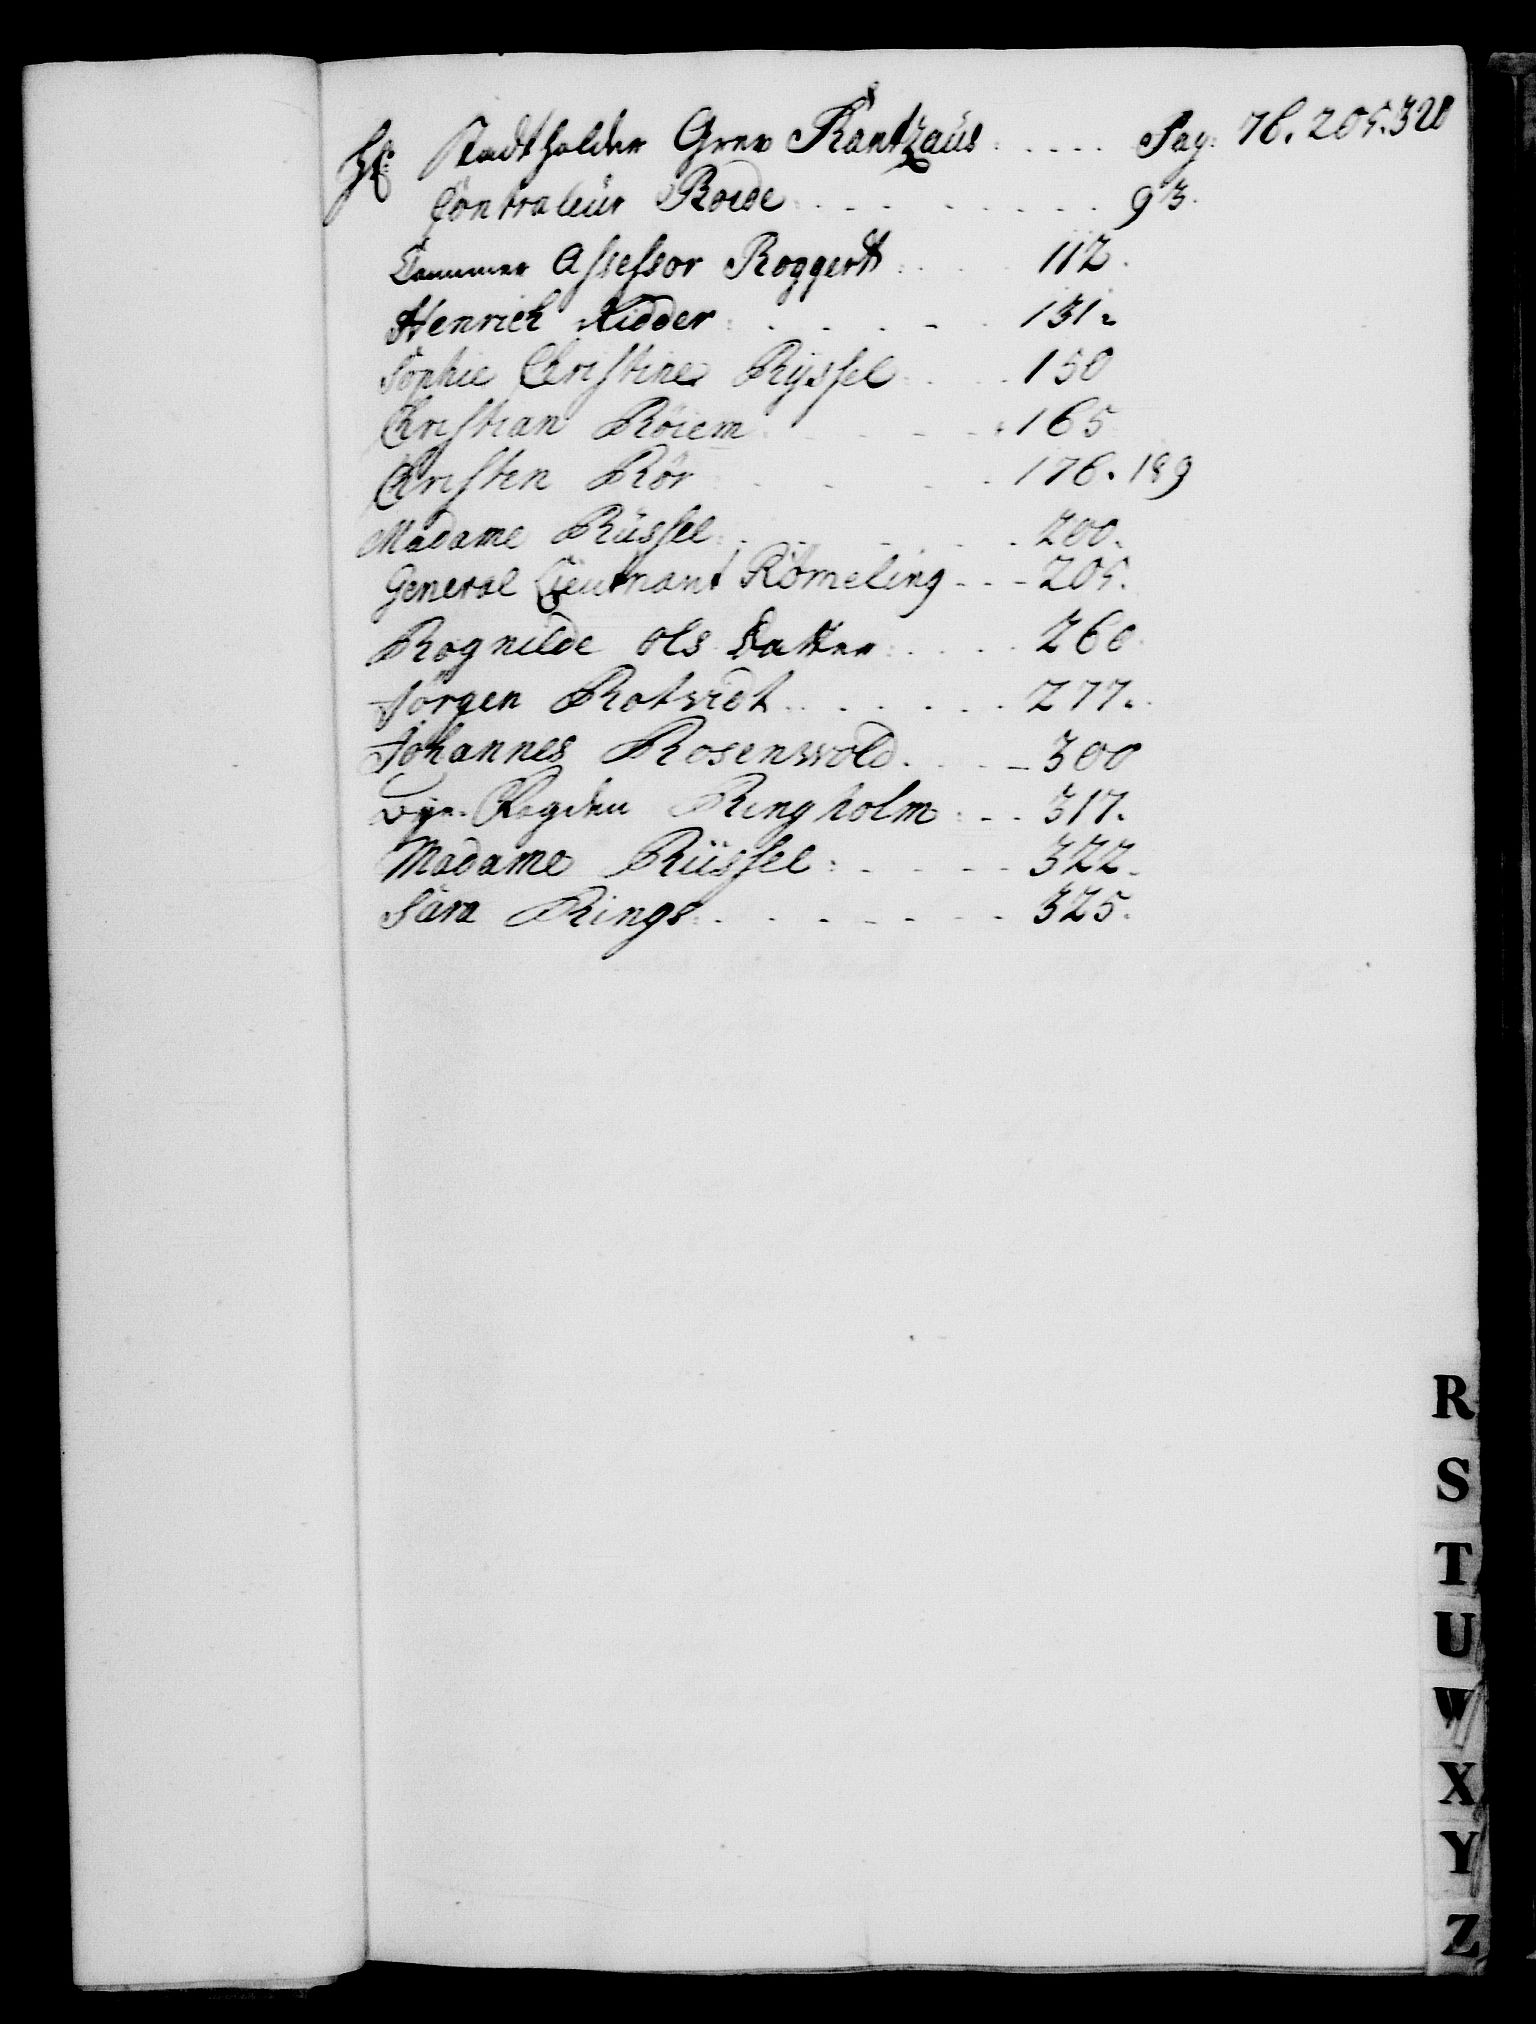 Hr: Stadtholder Grev Rantzaüs ..... Pag: 76. 205. 320
Contraleür Roede ......... 93.
Cammer Assessor Roggert .... 112.
Henrich Ridder ..... 131.
Sophie Christine Ryssel .... 150
Christian Röiem ..... 165
Christen Rör ..... 176. 189
Madame Rüssel ...... 200.
General Lieutnant Römeling ... 205.
Rognilde Ols Datter ..... 260.
Jörgen Rotvidt ...... 277.
Johannes Rosenwold ..... 300
Bye-Fogden Ringholm ... 317.
Madame Rüssel ..... 322.
Sara Rings ....... 325.
R
S
T
U
W
X
Y
Z